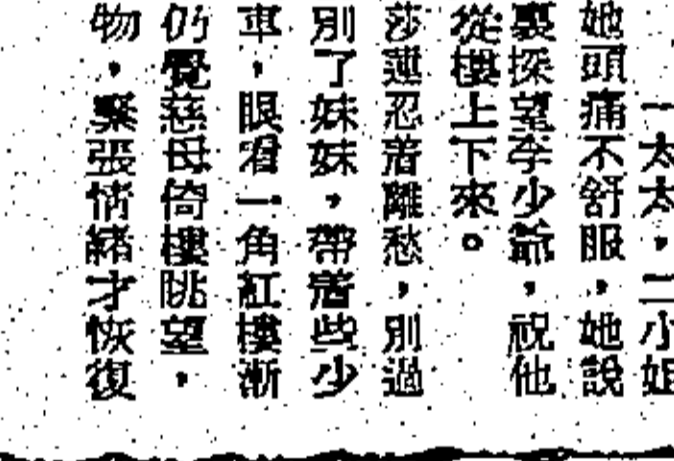 一太太，二小姐
她頭痛不舒服，她說
裏探望李少爺，祝他
從樓上下來。
莎蓮忍着離愁，別過
別了妹妹，帶着些少
車，眼看一角紅樓漸
仍覺慈母倚樓眺望，
物，緊張情緒才恢復